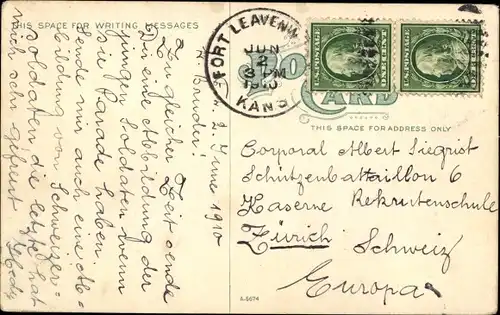 THIS SPACE FOR WRITING MESSAGES
FORT LEAVENW
JUN
2
3 PM
1910
KANS
U.S. POSTAGE
ONE CENT
U.S. POSTAGE
ONE CENT
PO
CARD
THIS SPACE FOR ADDRESS ONLY
2. June 1910
Bruder!
Zu gleicher Zeit sende
Dir eine Abbildung der
jungen Soldaten wenn
sie Parade haben.
Sende mir auch eine Ab-
bildung von Schweizer-
soldaten die letzte hat
mich sehr gefreut
Corporal Albert Siegrist
Schützenbattaillon 6
Kaserne Rekrutenschule
Zürich Schweiz
Europa
A-5674